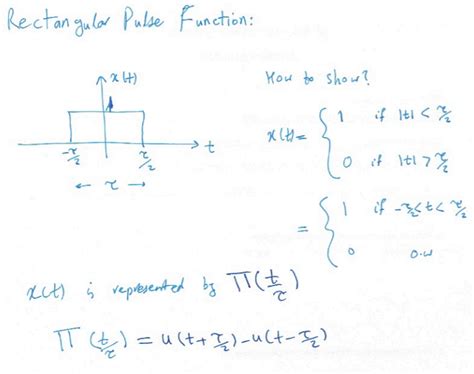 Rectangular Pulse Function:
x(t)
1
-τ/2
τ/2
t
← τ →
How to show?
x(t) = { 1 if |t| < τ/2
0 if |t| > τ/2
= { 1 if -τ/2 < t < τ/2
0 o.w
x(t) is represented by Π(t/τ)
Π(t/τ) = u(t + τ/2) - u(t - τ/2)